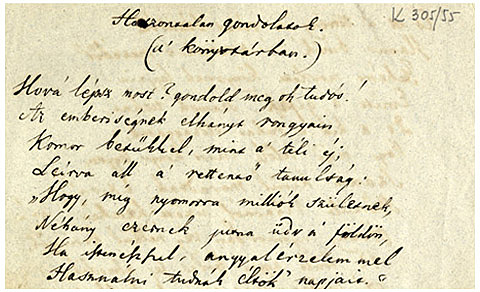 K 305/55
Haszontalan gondolatok.
(a' könyvtárban.)
Hová lépsz most? gondold meg oh tudós!
Az emberiségnek elhányt rongyain
Komor betükkel, mint a' téli éj,
Leirva áll a' rettentő tanulság:
„Hogy, míg nyomorra milliók születnek,
Néhány ezernek jutna üdv a' földön,
Ha istenésszel, angyal érzelemmel
Használni tudnák éltök' napjait."